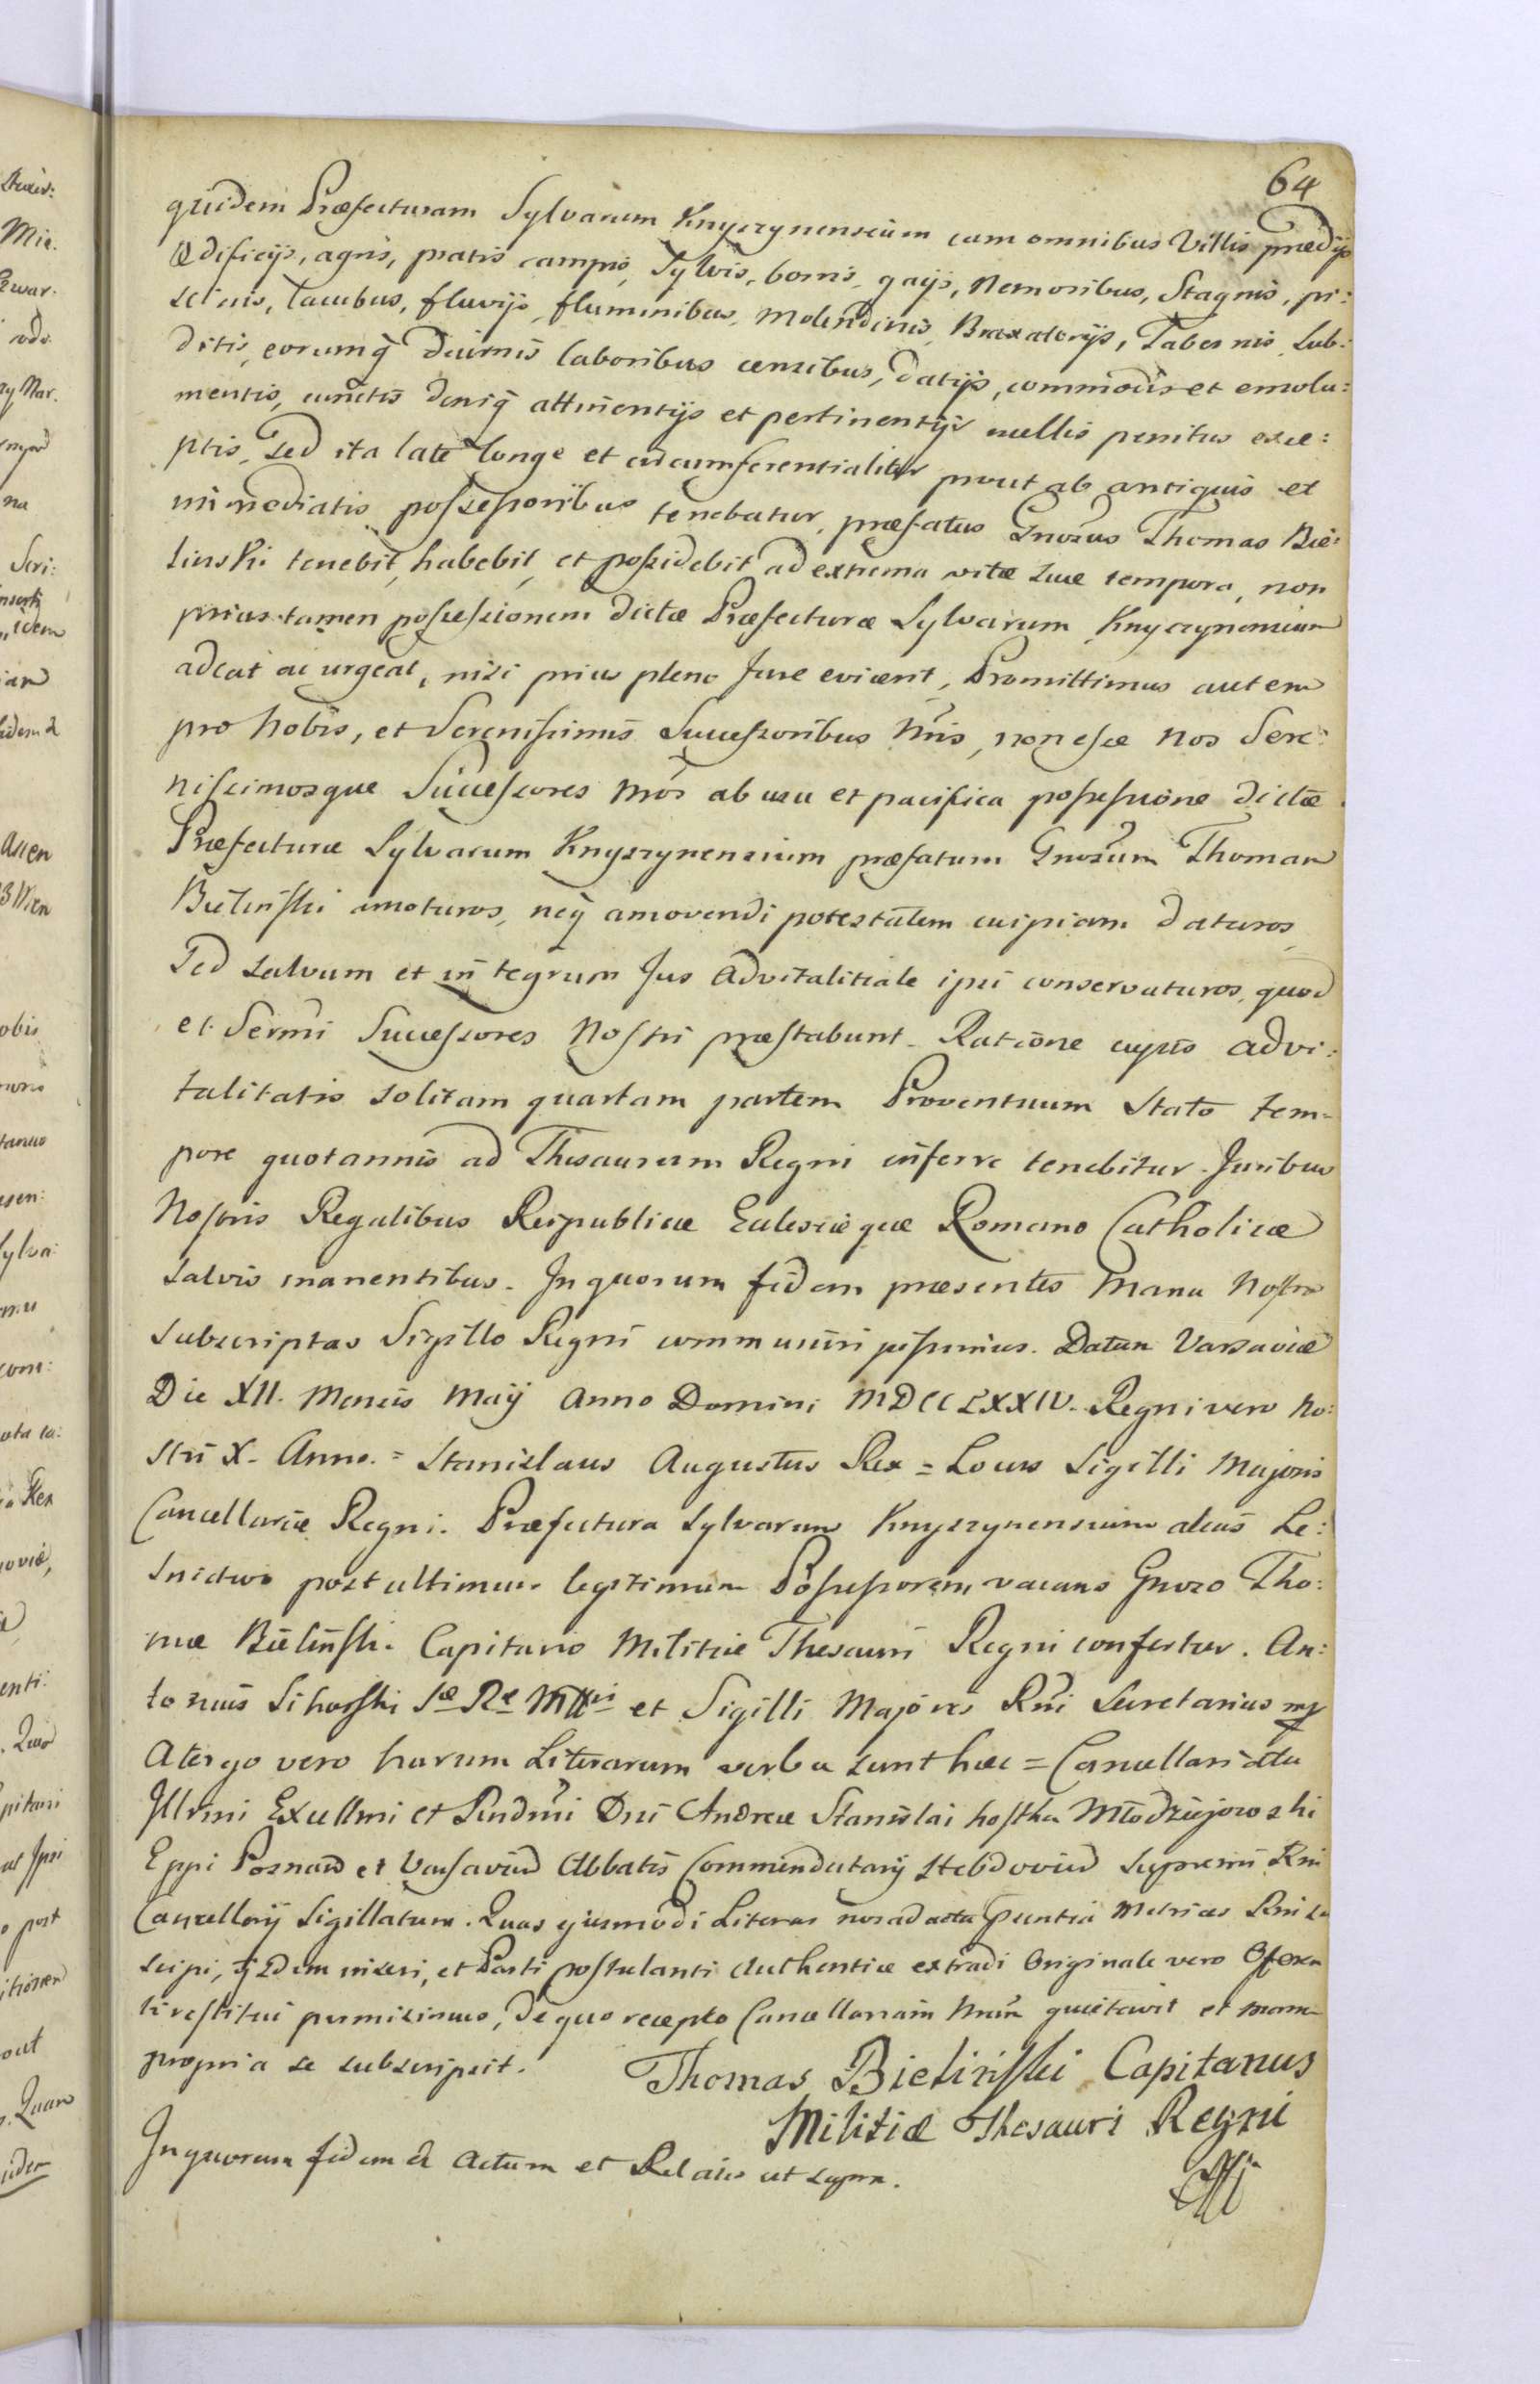 64
quidem Præfecturam Sylvarum Knyszynensium cum omnibus Villis prædijs
ædificijs, agris, pratis campis, Sylvis, borris, gaijs, Nemoribus, Stagnis, pi:
scinis, Lacubus, fluvijs, fluminibus, Molendinis, Braxatorijs, Tabernis, Sub:
ditis, eorumq̃ diurnis laboribus censibus, datijs, commodis et emolu:
mentis, cunctis deniq̃ attinentijs et pertinentijs nullis penitus exce:
ptis, Sed ita late longe et circumferentialiter prout ab antiquis et
immediatis possessoribus tenebatur, præfatus Gnosus Thomas Bie:
linski tenebit, habebit, et possidebit ad extrema vitæ suæ tempora, non
prius tamen possessionem dictæ Præfecturæ Sylvarum Knyszynensium
adeat ac urgeat, nisi prius pleno Jure evicerit, Promittimus autem
pro Nobis, et Serenissimis Successoribus Nris, non esse Nos Sere:
nissimosque Successores Nros ab usu et pacifica possessione dictæ
Præfecturæ Sylvarum Knyszynensium præfatum Gnosum Thomam
Bielinski amoturos, neq̃ amovendi potestatem cuipiam daturos,
Sed salvum et integrum Jus Advitalitiale ipsi conservaturos, quod
et Sermi Successores Nostri præstabunt. Ratione cujus advi:
talitatis solitam quartam partem Proventuum Stato tem-
pore quotannis ad Thesaurum Regni inferre tenebitur. Juribus
Nostris Regalibus Reipublicæ Ecclesiæque Romano Catholicæ
salvis manentibus. In quorum fidem præsentes Manu Nostra
subscriptas Sigillo Regni communiri jussimus. Datum Varsaviæ
Die XII. Mensis Maij Anno Domini MDCCLXXIV. Regni vero No:
stri X. Anno. = Stanislaus Augustus Rex = Locus Sigilli Majoris
Cancellariæ Regni. Præfectura Sylvarum Knyszynensium alias Le:
snictwo post ultimum legitimum Possessorem vacans Gnoso Tho:
mæ Bielinski Capitano Militiæ Thesauri Regni confertur. An:
tonius Sikorski Sæ Ræ Mttis et Sigilli Majoris Rni Secretarius mp
A tergo vero harum Literarum verba sunt hæc = Cancellariatu
Illrmi Excellmi et Rndmi Dni Andreæ Stanislai Kostka Młodziejowski
Eppi Posnań et Varsavień Abbatis Commendatarij Supremi Rni
Cancellarij Sigillatum. Quas ejusmodi Literas nos ad acta Metrices Rni su
scipi, ijsdem inseri, et Parti postulanti authentice extradi Originale vero Offeren
ti restitui permisimus, de quo recepto Cancellariam Nram quietavit et manu
propria se subscripsit.
Thomas Bielinski Capitanus
Militiæ Thesauri Regni
In quorum fidem et Actum et Relatio ut supra.